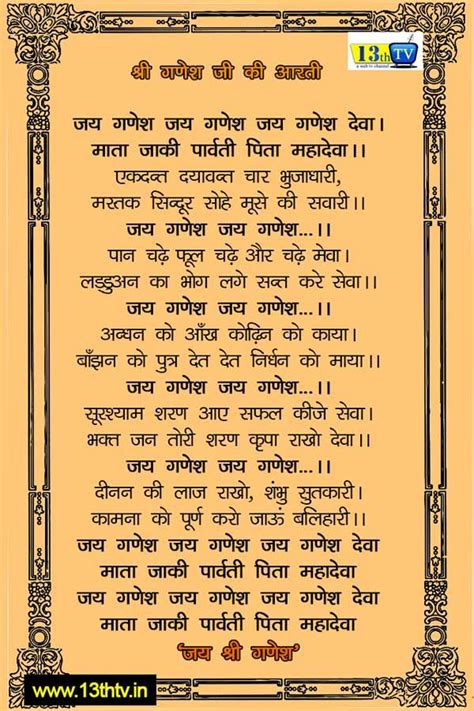 13th TV
a web tv channel
श्री गणेश जी की आरती
जय गणेश जय गणेश जय गणेश देवा।
माता जाकी पार्वती पिता महादेवा।।
एकदन्त दयावन्त चार भुजाधारी,
मस्तक सिन्दूर सोहे मूसे की सवारी।।
जय गणेश जय गणेश...।।
पान चढ़े फूल चढ़े और चढ़े मेवा।
लड्डुअन का भोग लगे सन्त करे सेवा।।
जय गणेश जय गणेश...।।
अन्धन को आँख कोढ़िन को काया।
बाँझन को पुत्र देत देत निर्धन को माया।।
जय गणेश जय गणेश...।।
सूरश्याम शरण आए सफल कीजे सेवा।
भक्त जन तोरी शरण कृपा राखो देवा।।
जय गणेश जय गणेश...।।
दीनन की लाज राखो, शंभु सुतकारी।
कामना को पूर्ण करो जाऊं बलिहारी।।
जय गणेश जय गणेश जय गणेश देवा
माता जाकी पार्वती पिता महादेवा
जय गणेश जय गणेश जय गणेश देवा
माता जाकी पार्वती पिता महादेवा
‘जय श्री गणेश’
www.13thtv.in